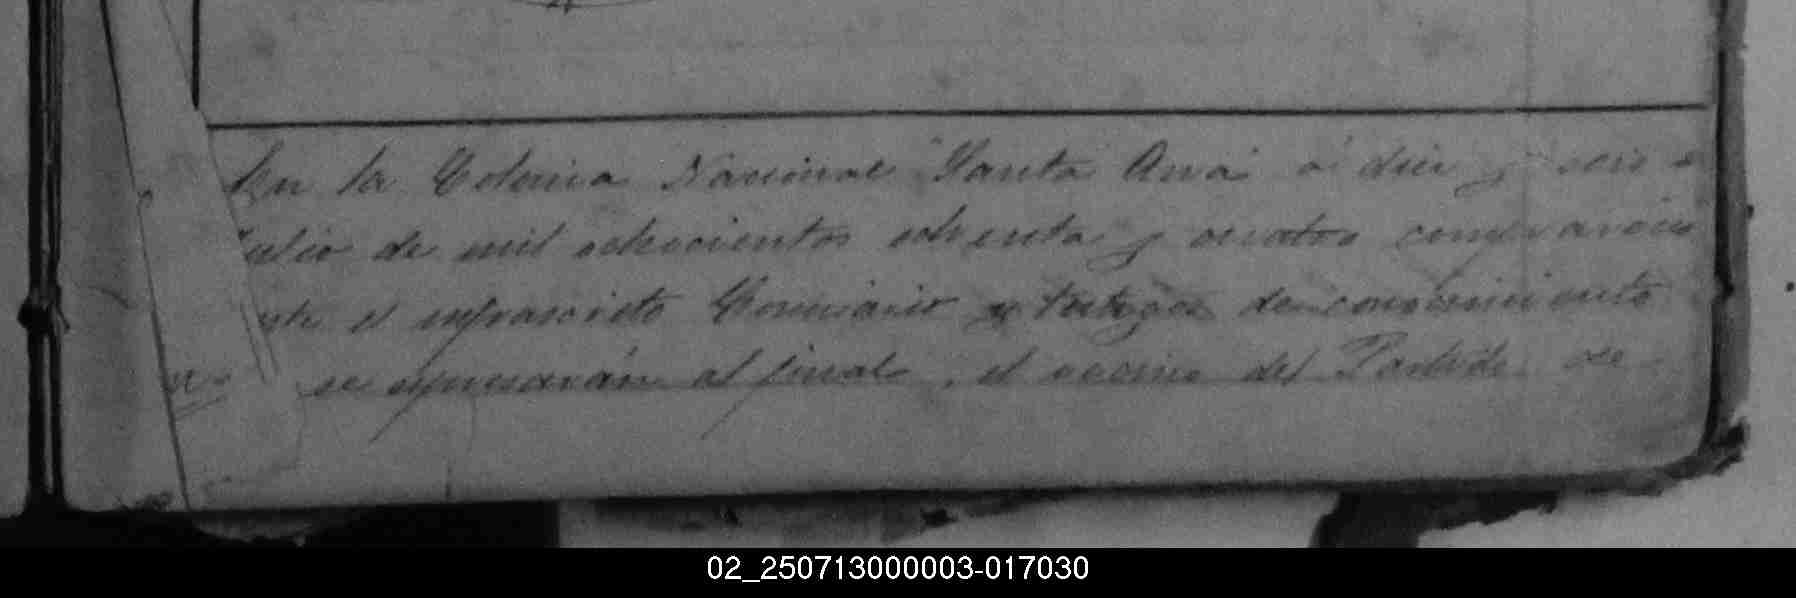 En la Colonia Nacional "Santa Ana" á diez y seis
Julio de mil ochocientos ochenta y cuatro compareció
ante el infrascrito Comisario y testigos de conocimiento
se espresarán al final, el vecino del Partido de
02_250713000003-017030